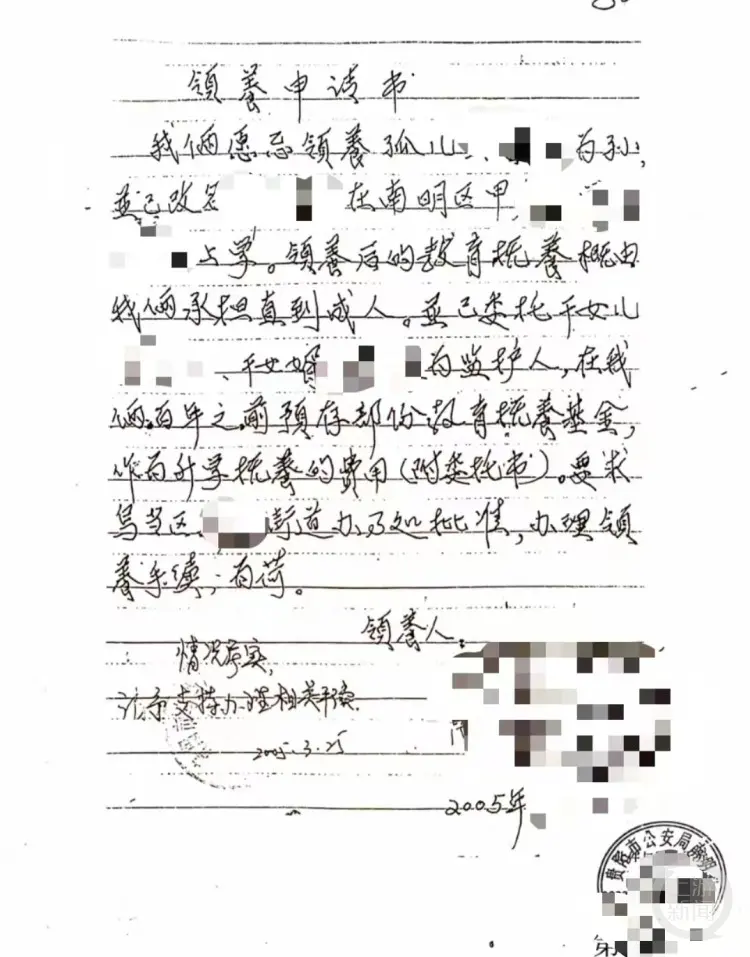 领養申请书
我俩愿意领養孤儿 为孙,
並已改名 在南明区甲
上学。领養后的教育抚養概由
我俩承担直到成人。並已委托干女儿
、干女婿 为监护人,在我
俩百年之前预存部份教育抚養基金,
作为升学抚養的费用(附委托书)。要求
乌当区 街道办事处批准,办理领
養手续,为荷。
领養人:
情况属实,
请予支持办理相关手续.
2005.3.25
2005年
贵阳市公安局南明
上游
新闻
第